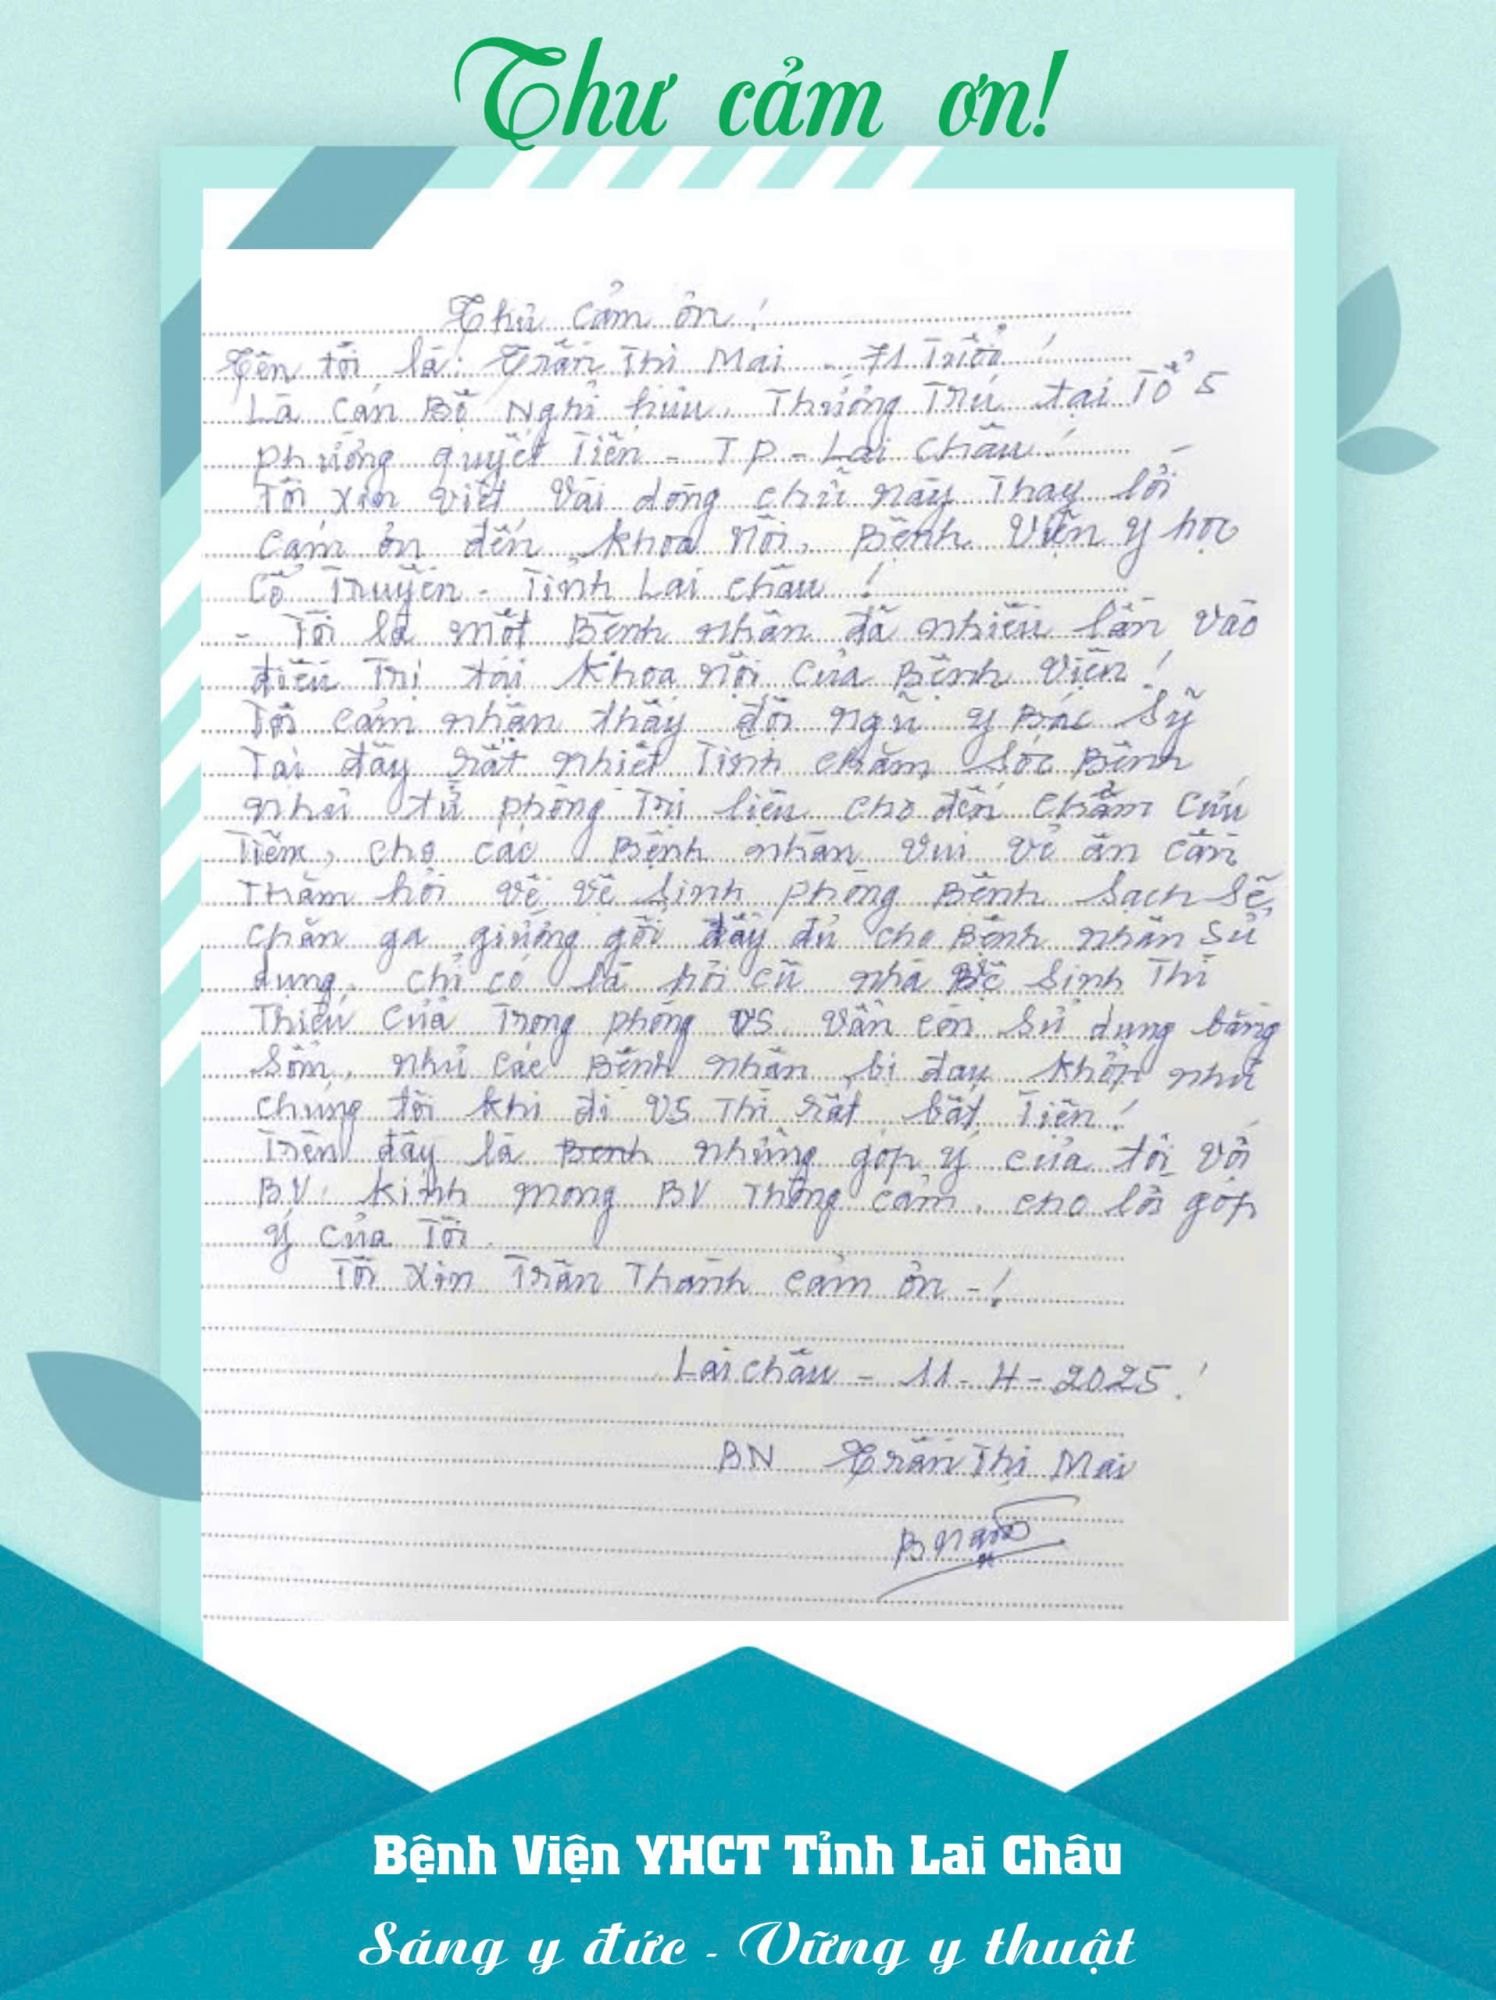 Thư cảm ơn!
Thư cảm ơn!
Tên tôi là: Trần Thị Mai - 71 Tuổi!
Là cán Bộ Nghỉ hưu. Thường Trú tại Tổ 5
phường quyết Tiến - TP - Lai Châu!
Tôi xin viết vài dòng chữ này Thay lời
cảm ơn đến khoa Nội, Bệnh viện y học
Cổ Truyền - Tỉnh Lai châu!
- Tôi là một Bệnh nhân đã nhiều lần vào
điều Trị tại khoa nội của Bệnh viện!
Tôi cảm nhận thấy đội ngũ y Bác Sỹ
Tại đây rất nhiệt Tình chăm sóc Bệnh
như từ phòng Trị liệu cho đến châm cứu
Tiêm, cho các Bệnh nhân vui vẻ ân cần
Thăm hỏi về vệ sinh phòng Bệnh sạch sẽ,
chăn ga giường gối đầy đủ cho Bệnh nhân sử
dụng, chỉ có là hơi cũ nhà sinh Thì
Thiếu của Trong phòng VS. vẫn còn sử dụng bằng
sổm, như các Bệnh nhân bị đau khớp như
chúng tôi khi đi VS Thì rất bất Tiện!
Trên đây là những góp ý của tôi với
BV. kính mong BV Thông cảm, cho lời góp
ý của Tôi.
Tôi xin Trân Thành cảm ơn -!
Lai châu - 11 - 4 - 2025!
BN Trần Thị Mai
Bệnh Viện YHCT Tỉnh Lai Châu
Sáng y đức - Vững y thuật